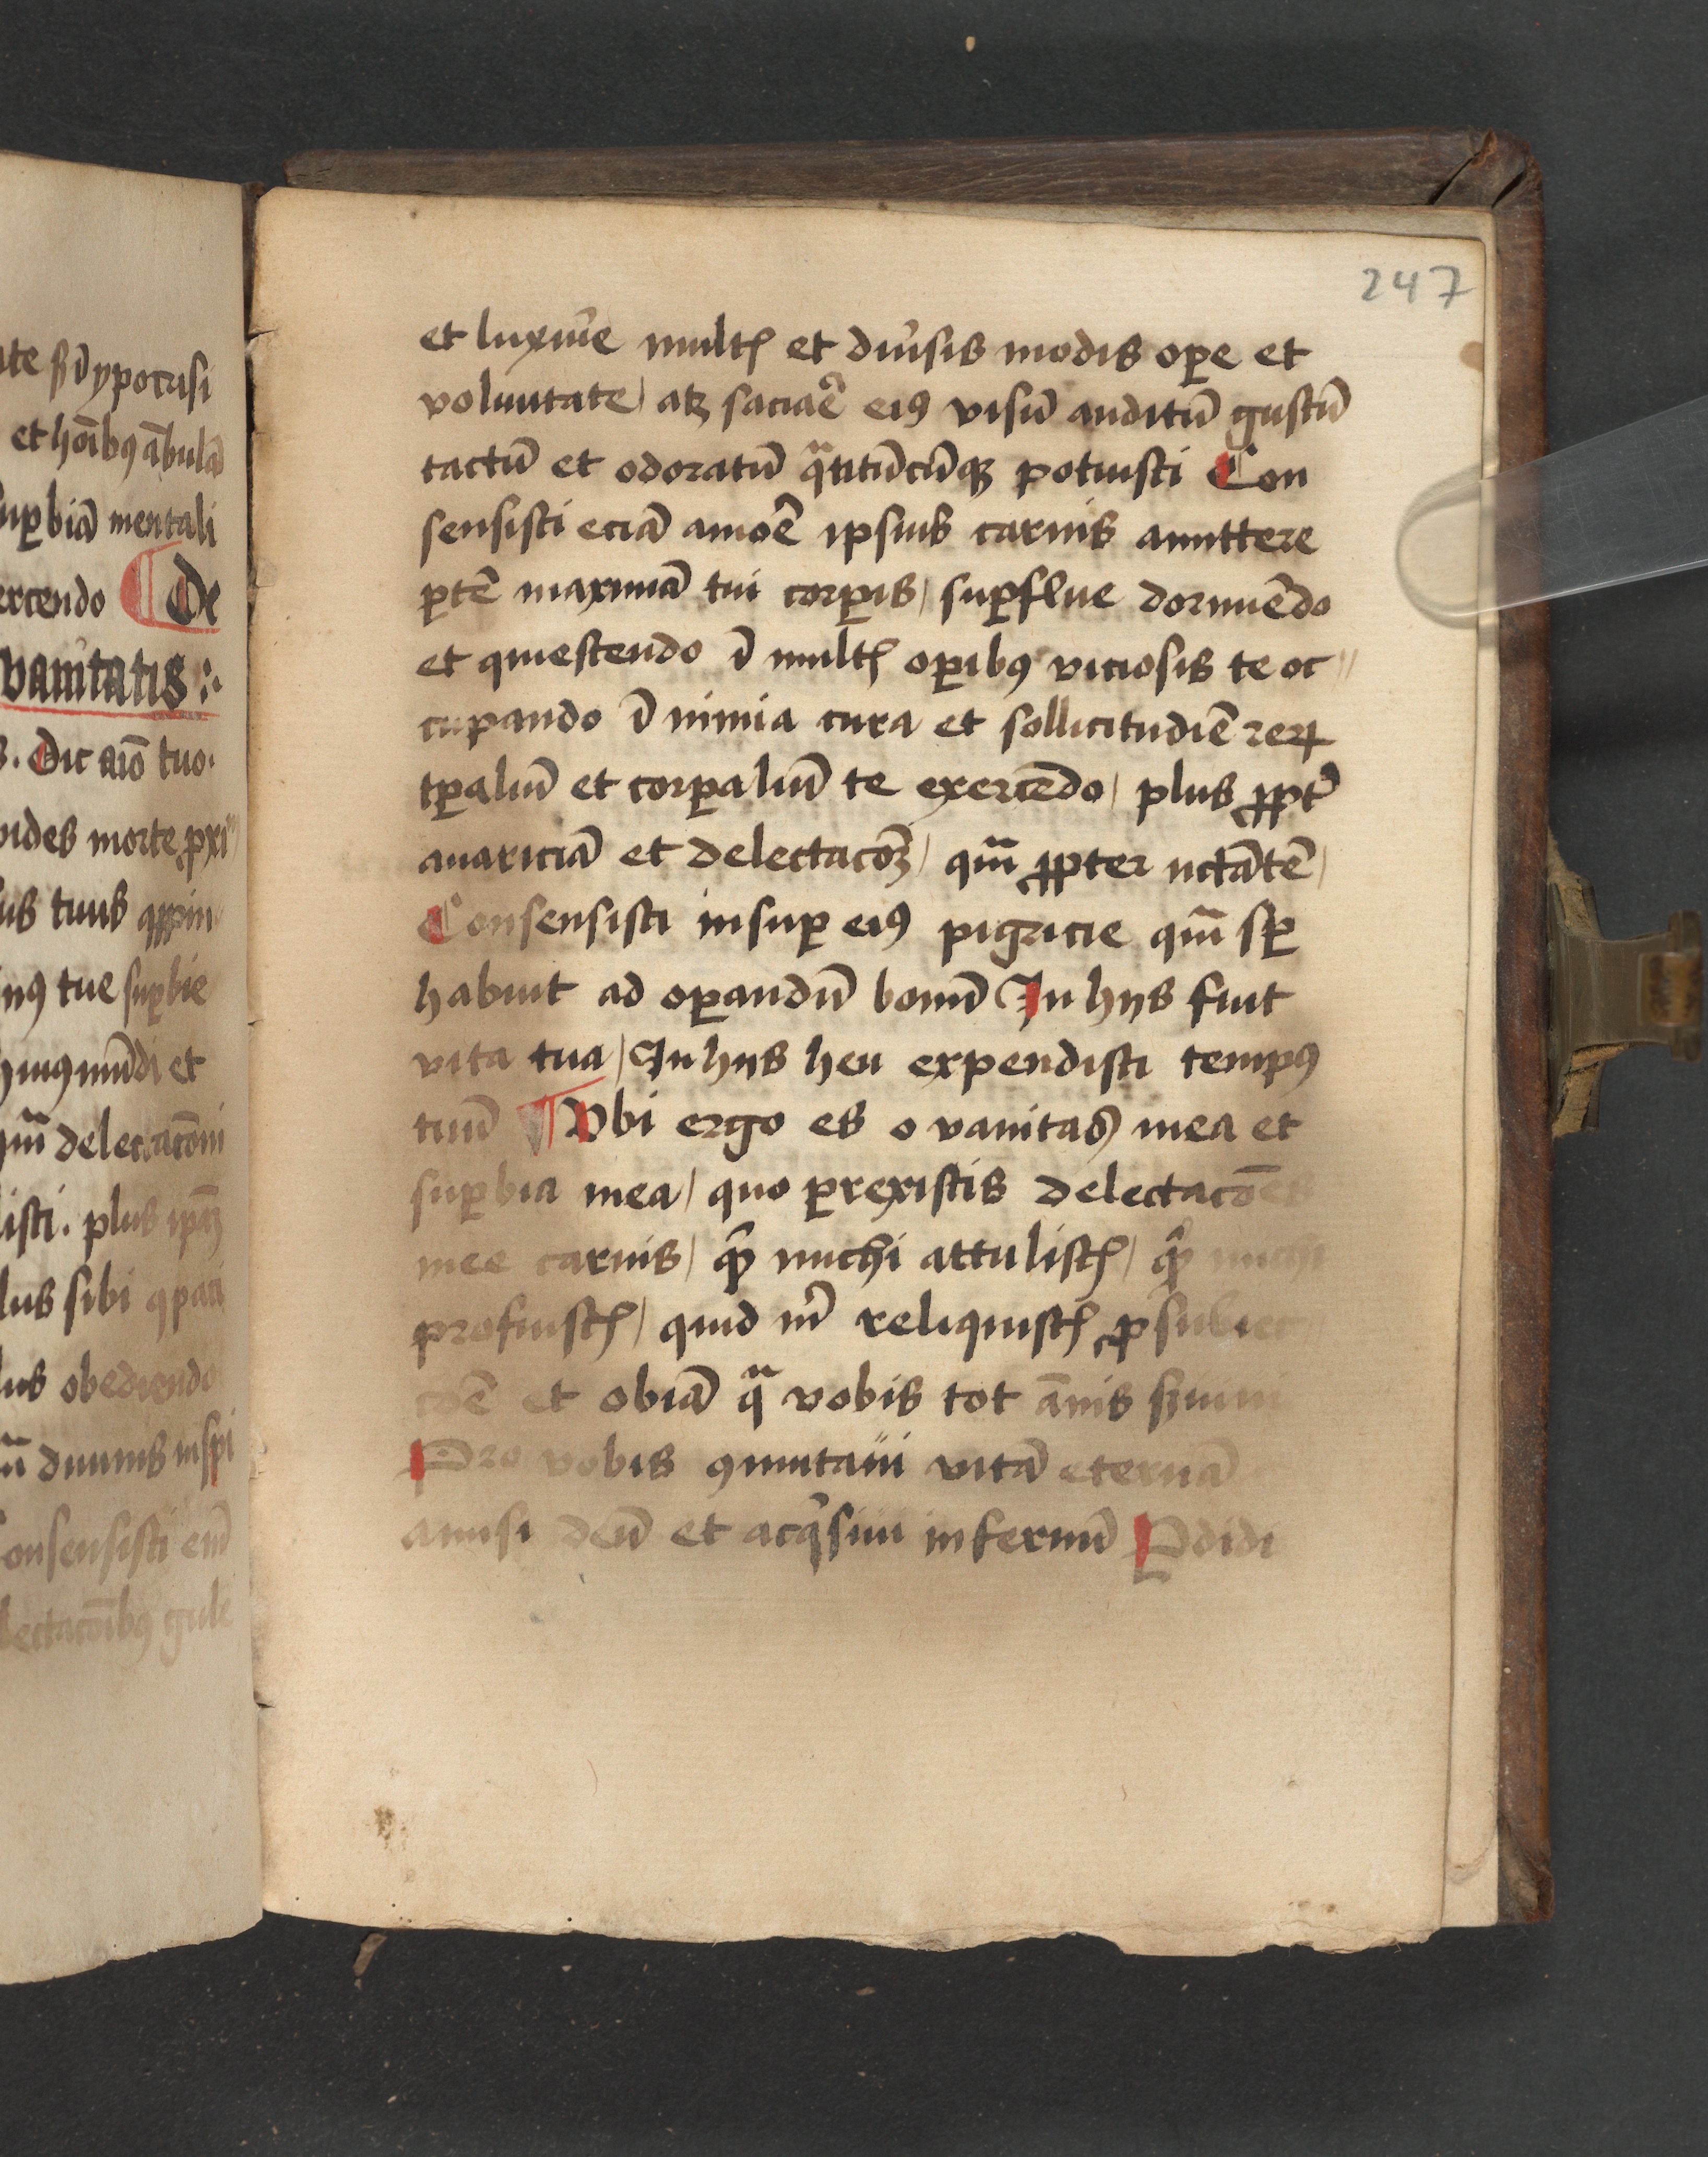 ate sūi ypocrisi
et hoībꝯ ābulā
suꝑbiā mentali
ercendo ¶ De
vanitatis :·
Dic aīo tuo·
vides morte ꝓxi
us tuus
nꝯ tue suꝑbie
huiꝯ mūdi et
qm̄ delectacōni
isti. plus ipāʒ
lus sibi
lus obediendo
diuinis inspi
onsensisti em̄
lectacōibꝯ gule
247
et luxurie multꝭ et diūsis modis oꝑe et
voluntate / atqꝫ saciaē eiꝯ visū auditū gustū
tactū et odoratū qᵃtitūcūqꝫ potuisti Con
sensisti eciā amoē ipsius carnis amittere
ꝑtē maximā tui corꝑis / suꝑflue dormiēdo
et quiescendo ī multꝭ oꝑibꝯ viciosis te oc〃
cupando ī nimia cura et sollicitudīe reꝝ
tꝑaliū et corꝑaliū te exercēdo / plus ꝓpt̄
auariciā et delectacōʒ / qm̄ ꝓpter nctātē /
Consensisti insuꝑ eiꝯ pigricie qm̄ sꝑ
habuit ad oꝑandū bonū In hijs fuit
vita tua / In hijs heu expendisti tempꝯ
tuū ¶ Vbi ergo es o vanitas mea et
suꝑbia mea / quo ꝑrexistis delectacōes
mee carnis / qͥd michi attulistꝭ / qͥd michi
profuistꝭ / quid m̄ reliquistꝭ ꝓ subiec
cōē et obiā qᵃ vobis tot ānis s̄uiui
Pro vobis ꝯmutaui vitā eternā
amisi deū et acqͥsiui infernū Ꝑdidi